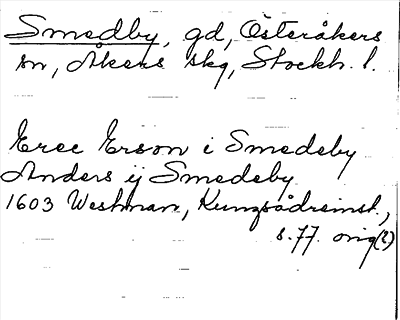 Smedby, gd, Österåkers
sn, Åkers skg, Stockh. l.
Erec Erson i Smedeby
Anders ij Smedeby
1603 Westman, Kungsådreinst.,
s. 77. orig(?)